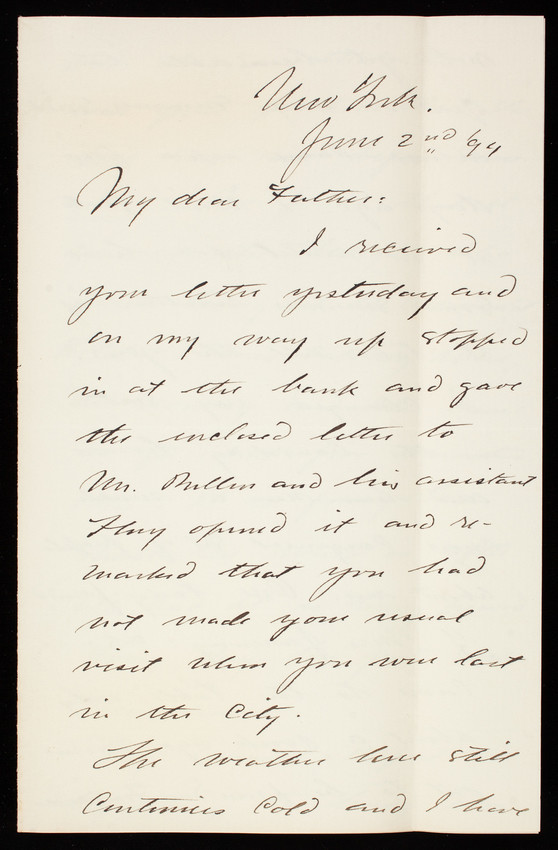 New York.
June 2nd /94
My dear Father:
I received
your letter yesterday and
on my way up stopped
in at the bank and gave
the enclosed letter to
Mr. and his assistant
They opened it and re-
marked that you had
not made your usual
visit when you were last
in the City.
The weather here still
Continues Cold and I have